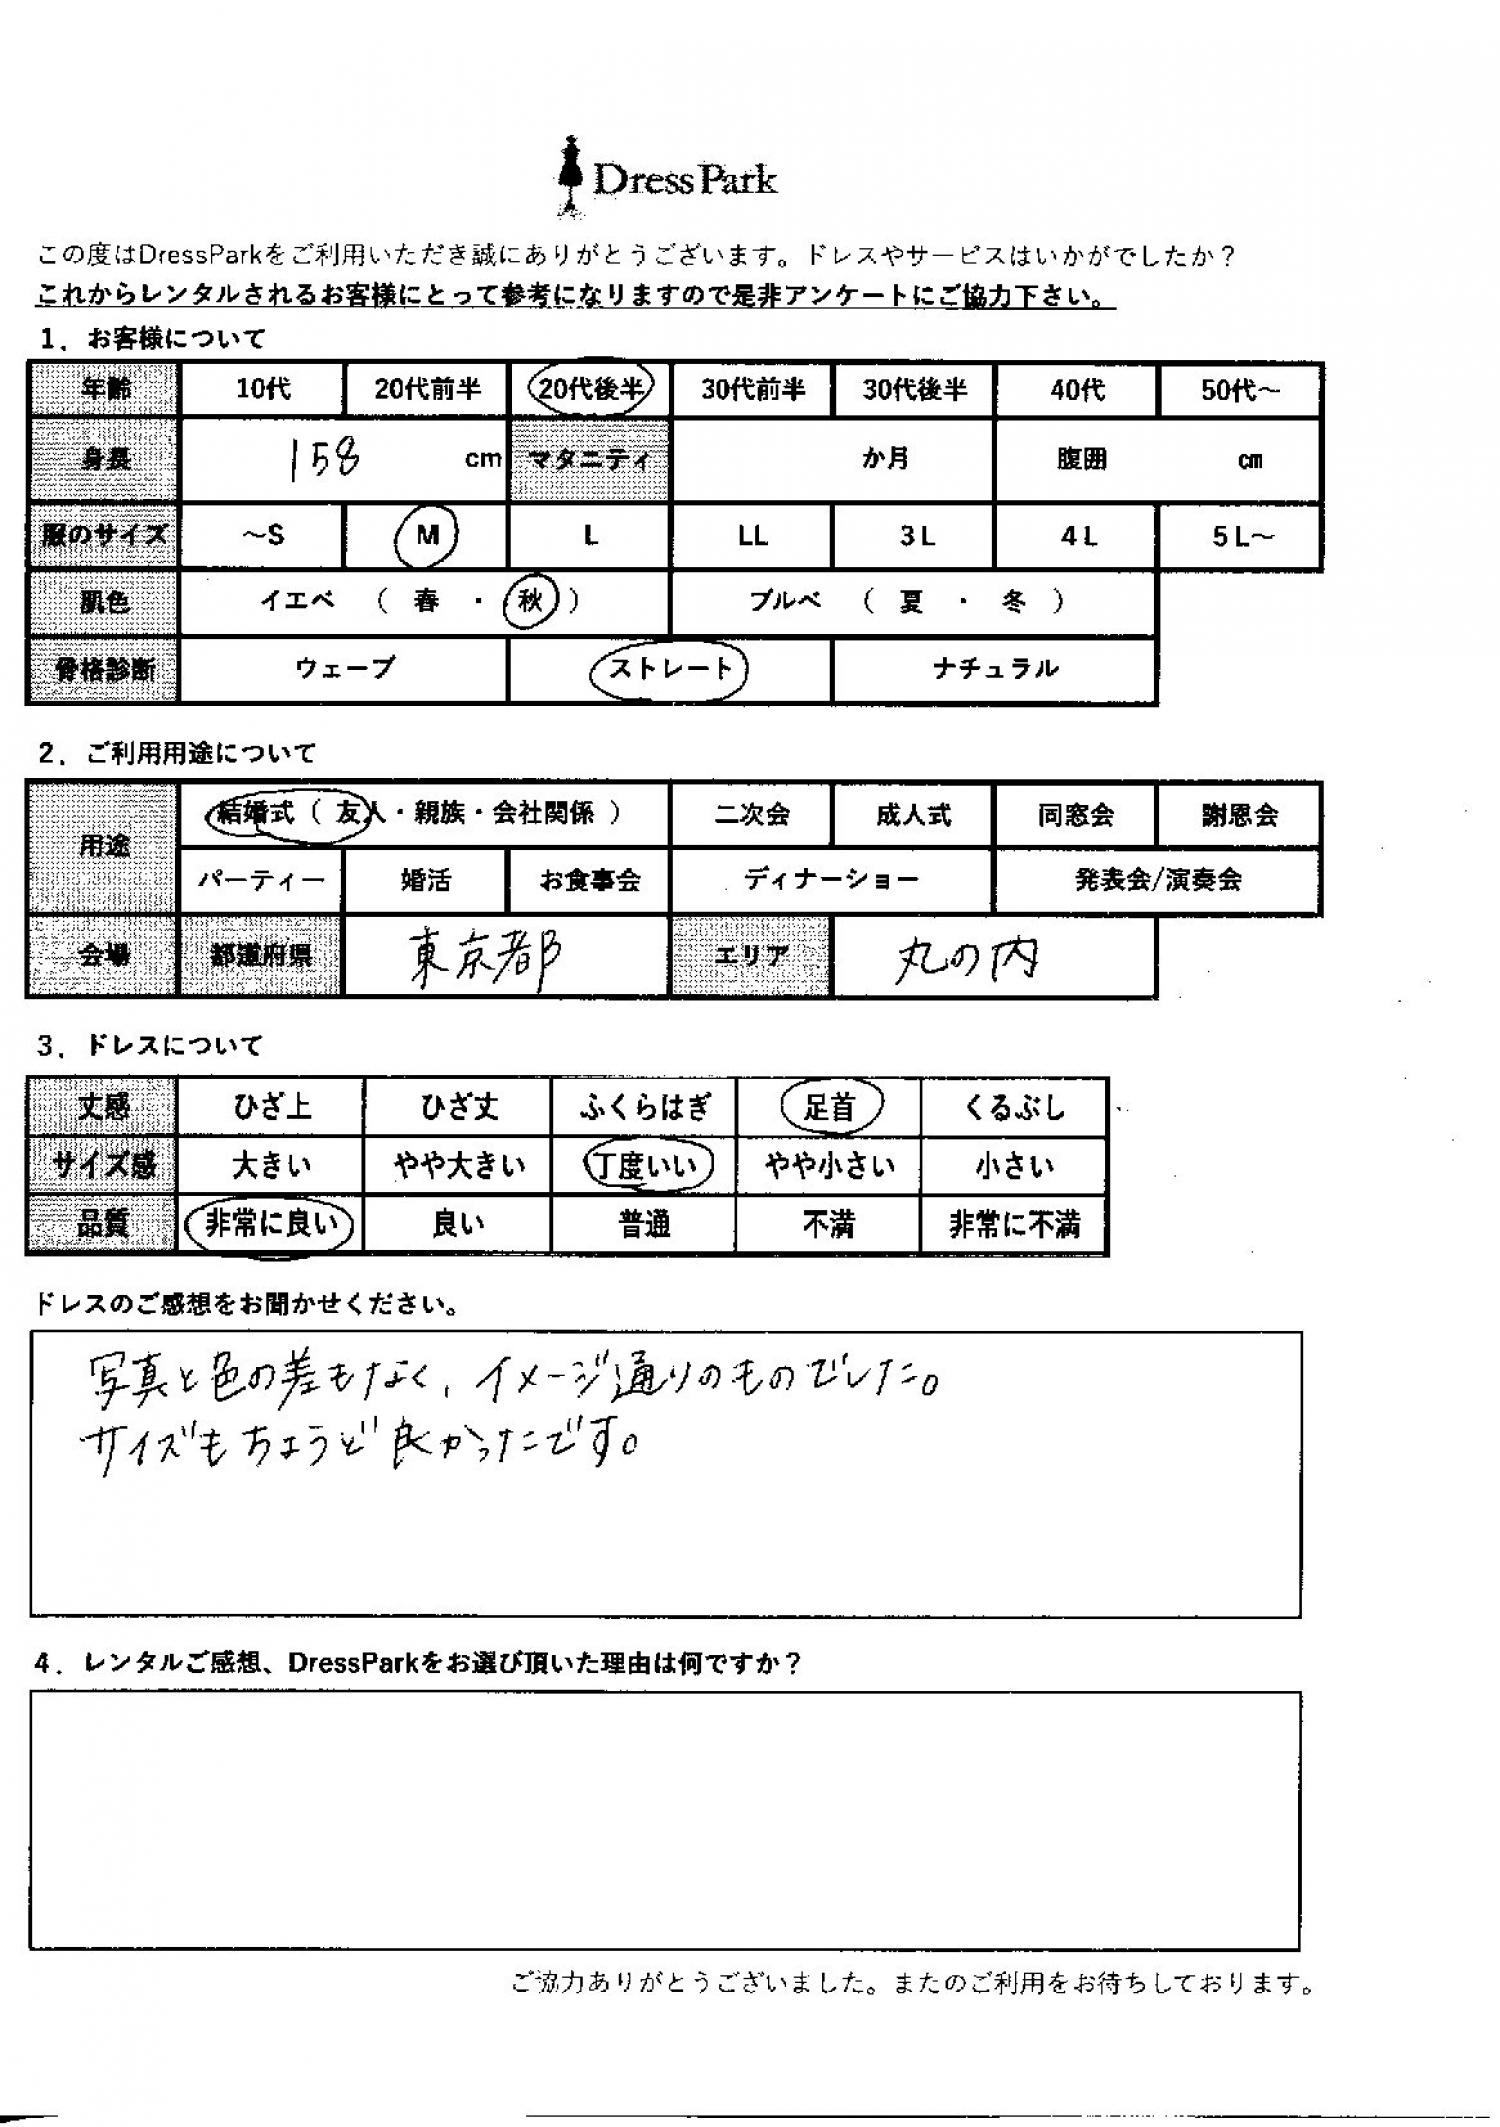 DressPark
この度はDressParkをご利用いただき誠にありがとうございます。ドレスやサービスはいかがでしたか？
これからレンタルされるお客様にとって参考になりますので是非アンケートにご協力下さい。
1．お客様について
年齢 10代 20代前半 20代後半 30代前半 30代後半 40代 50代～
身長 158 cm マタニティ か月 腹囲 cm
服のサイズ ～S M L LL 3L 4L 5L～
肌色 イエベ （ 春 ・ 秋 ） ブルベ （ 夏 ・ 冬 ）
骨格診断 ウェーブ ストレート ナチュラル
2．ご利用用途について
用途 結婚式（ 友人・親族・会社関係 ） 二次会 成人式 同窓会 謝恩会
パーティー 婚活 お食事会 ディナーショー 発表会/演奏会
会場 都道府県 東京都 エリア 丸の内
3．ドレスについて
丈感 ひざ上 ひざ丈 ふくらはぎ 足首 くるぶし
サイズ感 大きい やや大きい 丁度いい やや小さい 小さい
品質 非常に良い 良い 普通 不満 非常に不満
ドレスのご感想をお聞かせください。
写真と色の差もなく、イメージ通りのものでした。
サイズもちょうど良かったです。
4．レンタルご感想、DressParkをお選び頂いた理由は何ですか？
ご協力ありがとうございました。またのご利用をお待ちしております。